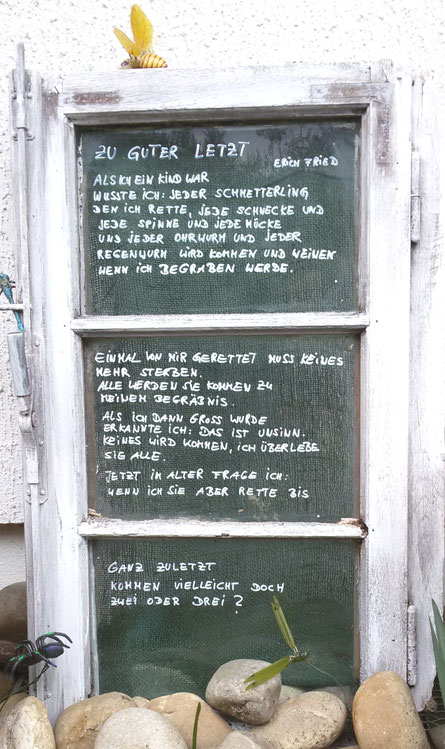 ZU GUTER LETZT
ERICH FRIED
ALS ICH EIN KIND WAR
WUSSTE ICH: JEDER SCHMETTERLING
DEN ICH RETTE, JEDE SCHNECKE UND
JEDE SPINNE UND JEDE MÜCKE
UND JEDER OHRWURM UND JEDER
REGENWURM WIRD KOMMEN UND WEINEN
WENN ICH BEGRABEN WERDE.
EINMAL VON MIR GERETTET MUSS KEINES
MEHR STERBEN.
ALLE WERDEN SIE KOMMEN ZU
MEINEM BEGRÄBNIS.
ALS ICH DANN GROSS WURDE
ERKANNTE ICH: DAS IST UNSINN.
KEINES WIRD KOMMEN, ICH ÜBERLEBE
SIE ALLE.
JETZT IM ALTER FRAGE ICH:
WENN ICH SIE ABER RETTE BIS
GANZ ZULETZT
KOMMEN VIELLEICHT DOCH
ZWEI ODER DREI?